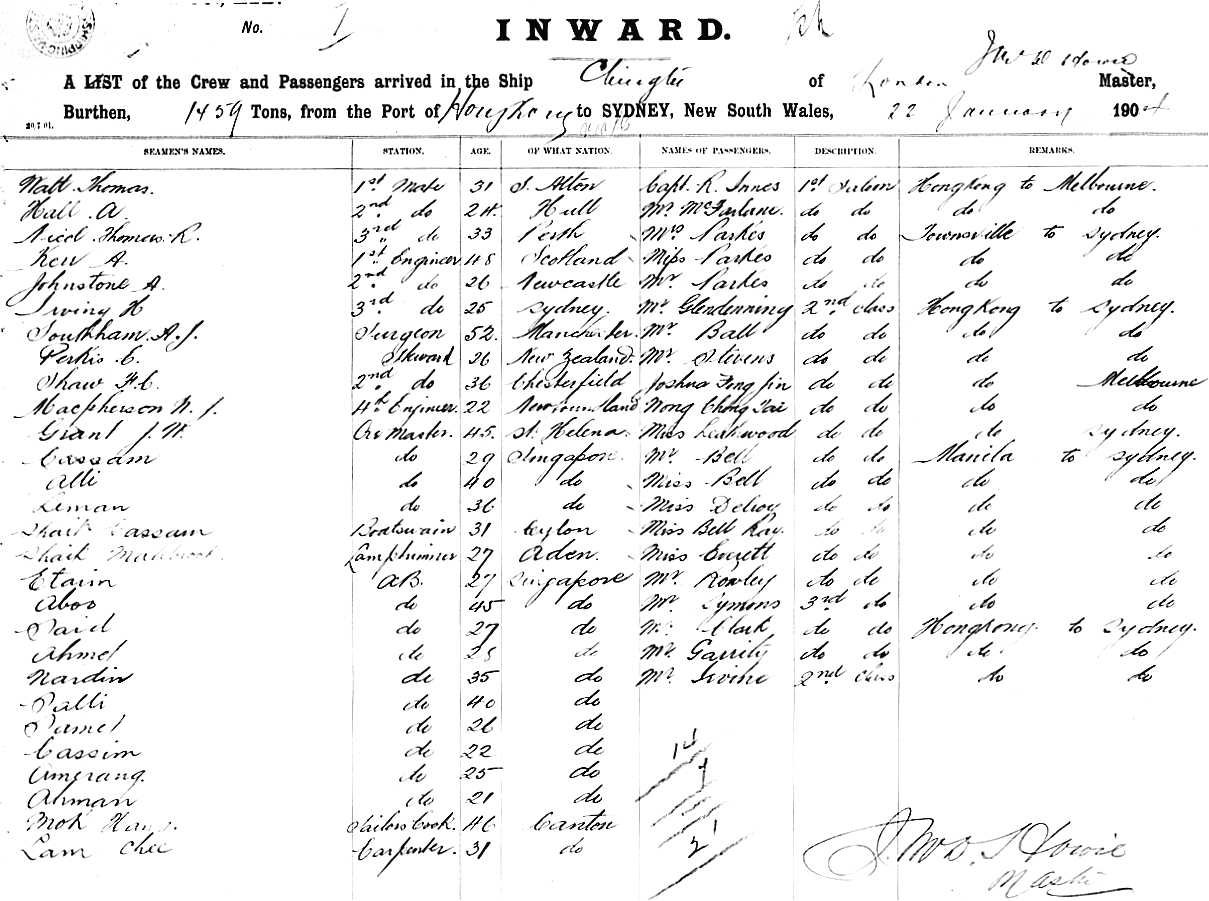 No. 1
INWARD.
A LIST of the Crew and Passengers arrived in the Ship Chingtu of London J W D Howie Master,
Burthen, 1459 Tons, from the Port of Hongkong to SYDNEY, New South Wales, 22 January 1904
20.7.01.
SEAMEN'S NAMES. STATION. AGE. OF WHAT NATION. NAMES OF PASSENGERS. DESCRIPTION. REMARKS.
Watt Thomas. 1st Mate 31 Alton Capt. R. Innes 1st Saloon Hongkong to Melbourne.
Hall A. 2nd do 24 Hull Mr McFarlane. do do do do
Nicol Thomas R. 3rd do 33 Perth Mrs Parkes do do Townsville to Sydney.
Kew A. 1st Engineer 48 Scotland Miss Parkes do do do do
Johnstone A. 2nd do 26 Newcastle Mr Parkes do do do do
Irving H 3rd do 25 Sydney. Mr Glendenning 2nd Class Hongkong to Sydney.
Southham A. J. Surgeon 52. Manchester. Mr Ball do do do do
Perkis C. Steward 26 New Zealand. Mr Stevens do do do do
Shaw F. C. 2nd do 36 Chesterfield Joshua Fong Jin do do do Melbourne
Macpherson N. J. 4th Engineer. 22 Newfoundland Nong Chong Tai do do do do
Grant J. W. Qr Master. 45. St Helena. Miss Leahwood do do do Sydney.
Cassam do 29 Singapore. Mr Bell do do Manila to Sydney.
Alli do 40 do Miss Bell do do do do
Leman do 36 do Miss Delroy do do do do
Shaik Cassam Boatswain 31 Ceylon Miss Bell Ray. do do do do
Shaik Lamptrimmer 27 Aden. Miss do do do do
Etam A.B. 27 Singapore Mr Rowley do do do do
Aboo do 45 do Mr Symons 3rd do do do
Said do 27 do Mr Clark do do Hongkong to Sydney.
Ahmet do do Mr Garrity do do do do
Nardin do 35 do Mr Irvine 2nd Class do do
Salli do 40 do
Samet do 26 do
Cassim do 22 do
Amerang. do 25 do
Ahman do 21 do
Mok Sailors Cook. 46 Canton
Lam Chee Carpenter. 31 do
14
7
21
J. W. D. Howie
Master